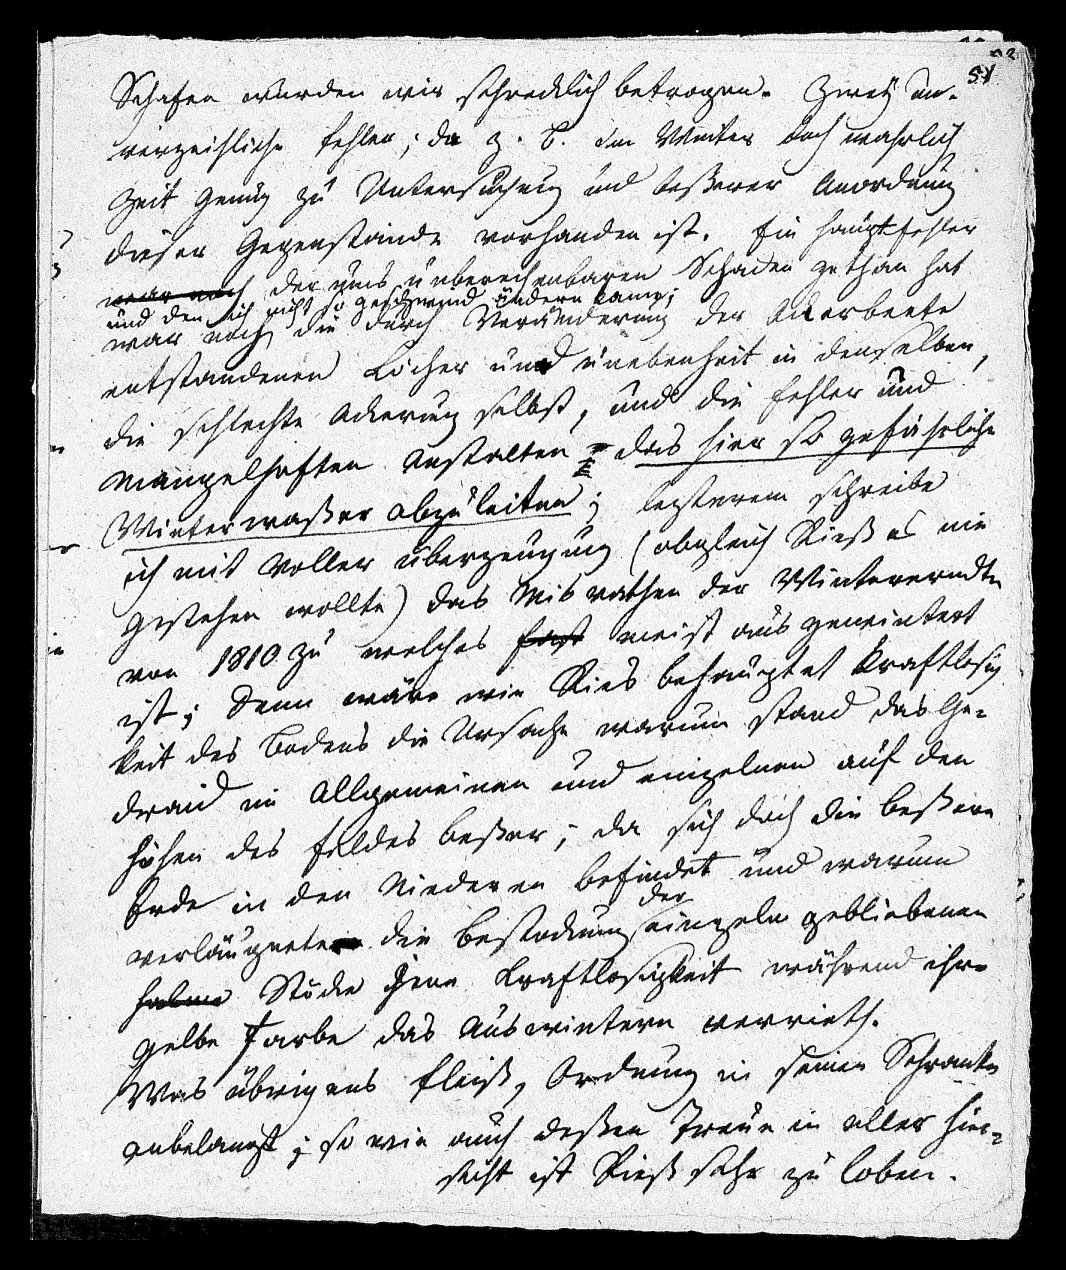 51
Schafen wurden wir schrecklich betrogen. Zweÿ un-
verzeihliche Fehler; da z. B. im Winter doch wahrlich
Zeit genug zu Untersuchung und beßerer Anordnung
dieser Gegenstände vorhanden ist. Ein Hauptfehler
war noch der uns unberechenbaren Schaden gethan hat
und den ich nicht so geschwind ändern kann;
war noch die durch Veränderung der Akerbeete
entstandenen Löcher und unebenheit in denselben,
die schlechte Akerung selbst, und die Fehler und
Mangelhaften Anstalten das hier so gefährliche
Winterwaßer abzuleiten; lezterem schreibe
ich mit voller überzeugung (obgleich Rieß es nie
gestehen wollte) das Misrathen der Winterernte
von 1810 zu welches fast meist ausgewintert
ist; denn wäre wie Ries behauptet Kraftlosig
keit des Bodens die Ursache warum stand das Ge-
draid im Allgemeinen und einzelnen auf den
Höhen des Feldes beßer; da sich doch die beßere
Erde in den Niederen befindet und warum
verläugnete die Bestockung der einzeln gebliebenen
halme Stöcke jene Kraftlosigkeit während ihre
gelbe Farbe das Auswintern verrieth.
Was übrigens Fleiß, Ordnung in seinen Schranken
anbelangt; so wie auch deßen Treue in aller Hin-
sicht ist Rieß sehr zu loben.